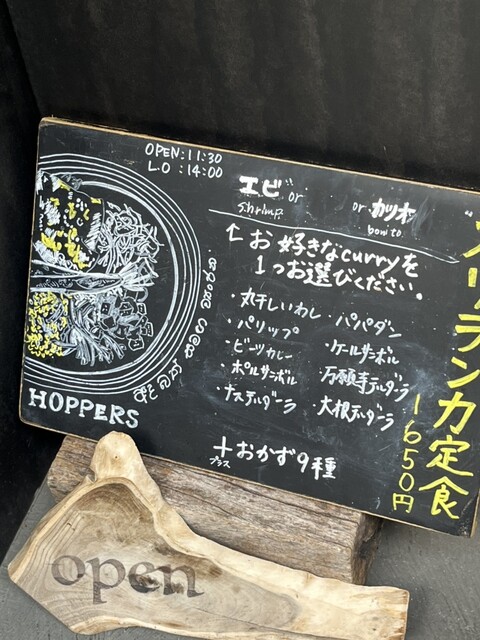 OPEN:11:30
L.O :14:00
エビ or
shrimp
or カツオ
bonito
↑お好きなcurryを
1つお選びください。
・丸干しいわし
・パパダン
・パリップ
・ビーツカレー
・ケールサンボル
・ポルサンボル
・万願寺デルダーラ
・ナスデルダーラ
大根デルダーラ
+おかず9種
プラス
スリランカ定食
1650円
HOPPERS
open